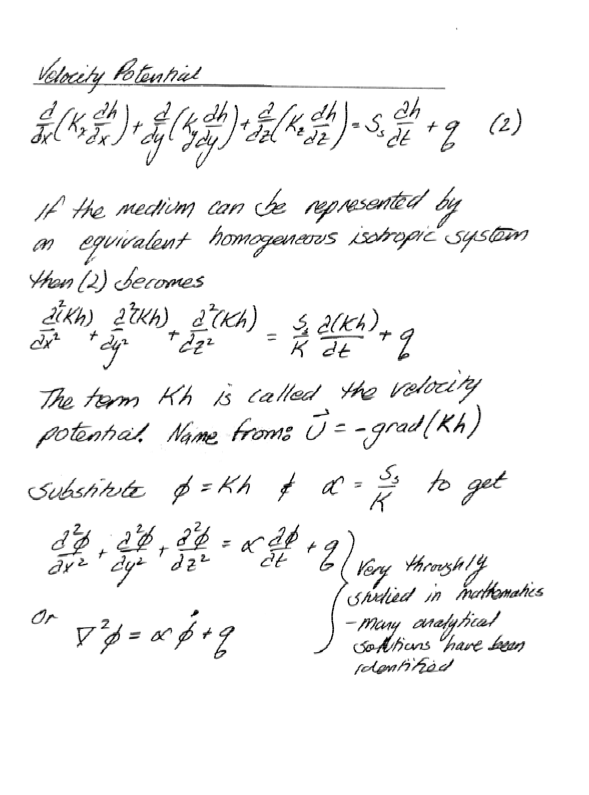 Velocity Potential
∂/∂x (Kx ∂h/∂x) + ∂/∂y (Ky ∂h/∂y) + ∂/∂z (Kz ∂h/∂z) = Ss ∂h/∂t + q (2)
If the medium can be represented by
an equivalent homogeneous isotropic system
then (2) becomes
∂²(Kh)/∂x² + ∂²(Kh)/∂y² + ∂²(Kh)/∂z² = Ss/K ∂(Kh)/∂t + q
The term Kh is called the velocity
potential. Name from: U⃗ = -grad(Kh)
Substitute ϕ = Kh & α = Ss/K to get
∂²ϕ/∂x² + ∂²ϕ/∂y² + ∂²ϕ/∂z² = α ∂ϕ/∂t + q
Or
∇²ϕ = α ϕ̇ + q
Very throughly
studied in mathematics
- many analytical
solutions have been
identified